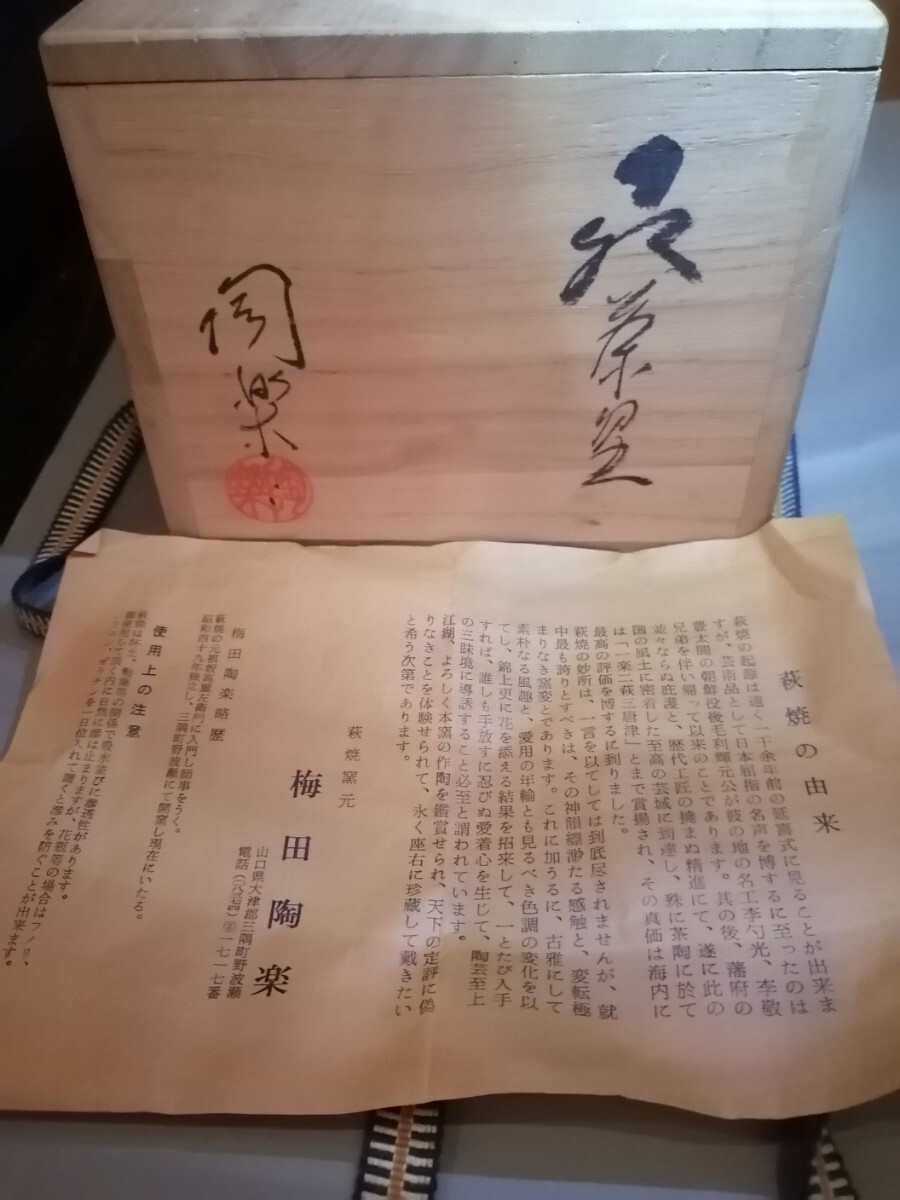 茶盌
陶楽
陶楽
萩焼の由来
萩焼の起源は遠く一千余年前の延喜式に見ることが出来ま
すが、芸術品として日本屈指の名声を博するに至ったのは
豊太閤の朝鮮役後毛利輝元公が彼の地の名工李勺光、李敬
兄弟を伴い帰って以来のことであります。其の後、藩府の
並々ならぬ庇護と、歴代工匠の撓まぬ精進にて、遂に此の
国の風土に密着した至高の芸域に到達し、殊に茶陶に於て
は「一楽二萩三唐津」とまで賞揚され、その真価は海内に
最高の評価を博するに到りました。
萩焼の妙所は、一言を以てしては到底尽されませんが、就
中最も誇りとすべきは、その神韻縹渺たる感触と、変転極
まりなき窯変とであります。これに加うるに、古雅にして
素朴なる風趣と、愛用の年輪とも見るべき色調の変化を以
てし、錦上更に花を添える結果を招来して、一とたび入手
すれば、誰しも手放すに忍びぬ愛着心を生じて、陶芸至上
の三昧境に導誘すること必至と謂われています。
江湖、よろしく本窯の作陶を鑑賞せられ、天下の定評に偽
りなきことを体験せられて、永く座右に珍蔵して戴きたい
と希う次第であります。
萩焼窯元
梅田陶楽
山口県大津郡三隅町野波瀬
電話(〇八三七四)②一七一七番
梅田陶楽略歴
萩焼の元祖坂高麗左衛門に入門し師事をうく。
昭和四十九年独立し、三隅町野波瀬にて開窯し現在にいたる。
使用上の注意
萩焼は粘土、釉薬等の関係で吸水並びに滲透性があります。
御使用して頂く内に自然に滲は止まりますが、花瓶等の場合はフノリ、
シリコン、ゼラチンを一日位入れて置くと滲みを防ぐことが出来ます。